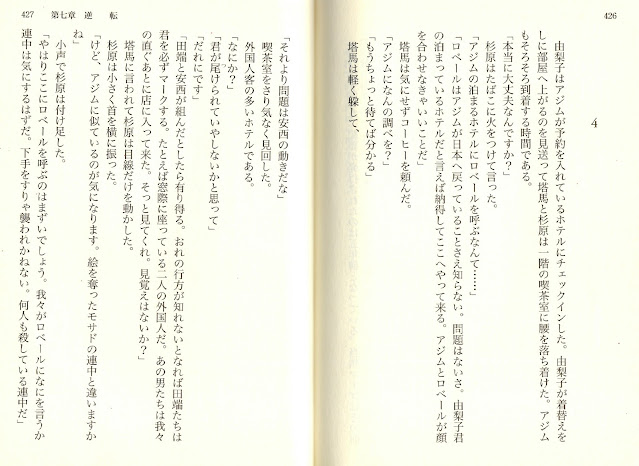 426
4
　由梨子はアジムが予約を入れているホテルにチェックインした。由梨子が着替えを
しに部屋へ上がるのを見送って塔馬と杉原は一階の喫茶室に腰を落ち着けた。アジム
もそろそろ到着する時間である。
「本当に大丈夫なんですか？」
　杉原はたばこに火をつけて言った。
「アジムの泊まるホテルにロベールを呼ぶなんて……」
「ロベールはアジムが日本へ戻っていることさえ知らない。問題はないさ。由梨子君
の泊まっているホテルだと言えば納得してここへやって来る。アジムとロベールが顔
を合わせなきゃいいことだ」
　塔馬は気にせずコーヒーを頼んだ。
「アジムになんの調べを？」
「もうちょっと待てば分かる」
　塔馬は軽く躱して、
427　第七章　逆　転
「それより問題は安西の動きだな」
　喫茶室をさり気なく見回した。
　外国人客の多いホテルである。
「なにか？」
「君が尾けられていやしないかと思って」
「だれにです」
「田端と安西が組んだとしたら有り得る。おれの行方が知れないとなれば田端たちは
君を必ずマークする。たとえば窓際に座っている二人の外国人だ。あの男たちは我々
の直ぐあとに店に入って来た。そっと見てくれ。見覚えはないか？」
　塔馬に言われて杉原は目線だけを動かした。
　杉原は小さく首を横に振った。
「けど、アジムに似ているのが気になります。絵を奪ったモサドの連中と違いますか
ね」
　小声で杉原は付け足した。
「やはりここにロベールを呼ぶのはまずいでしょう。我々がロベールになにを言うか
連中は気にするはずだ。下手をすりゃ襲われかねない。何人も殺している連中だ」